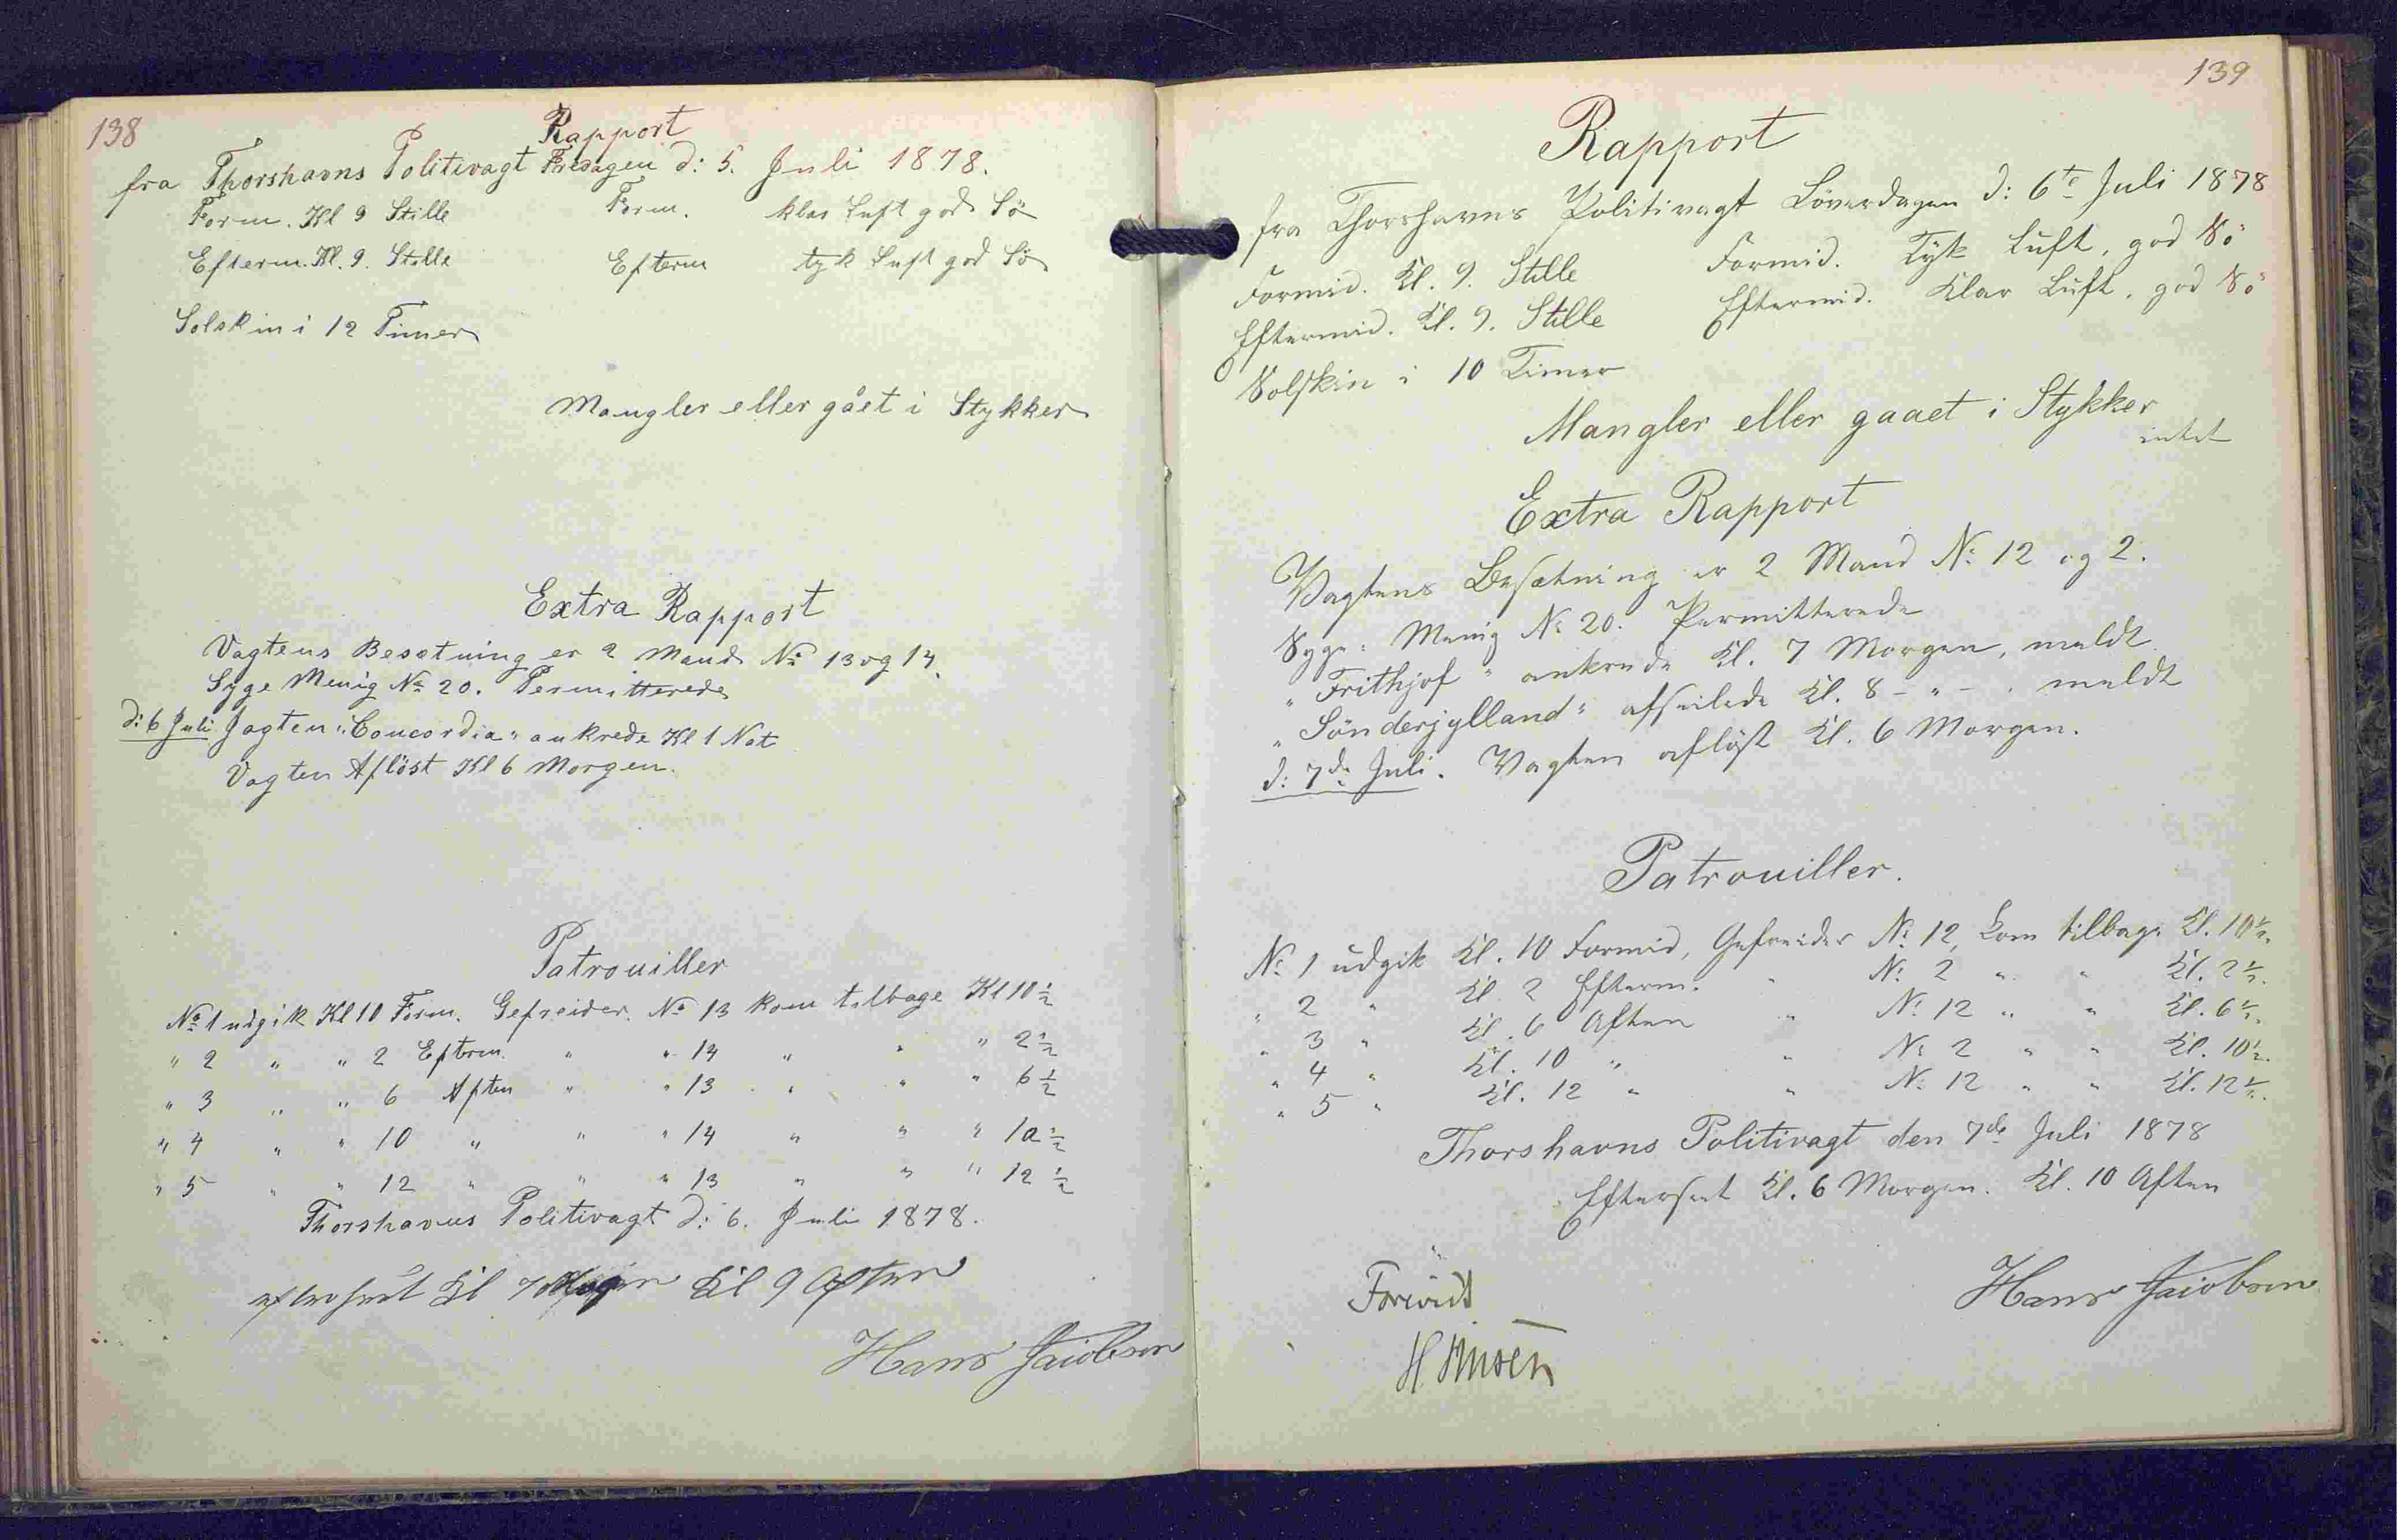 138
Rapport
fra Thorshavns Politivagt Fredagen d: 5. Juli 1878.
Form. Kl 9 Stille Form. klar Luft god Sö
Efterm. Kl. 9. Stille Efterm tyk Luft god Sö
Solskin i 12 Timer
Mangler eller gået i Stykker
Extra Rapport
Vagtens Besætning er 2 Mand No 13 og 14.
Syge Menig No 20. Permitterede
d: 6 Juli Jagten "Concordia" ankrede Kl 1 Nat
Vagten Aflöst Kl 6 Morgen.
Patrouiller
No 1 udgik Kl 10 Form. Gefreider. No 13 kom tilbage Kl 10 ½
" 2 " " 2 Efterm. " " 14 " " " 2 ½
" 3 " " 6 Aften " " 13 " " " 6 ½
" 4 " " 10 " " " 14 " " " 10 ½
" 5 " " 12 " " " 13 " " " 12 ½
Thorshavns Politivagt d: 6. Juli 1878.
efterseet Kl 7 Morgen Kl 9 Aften
Hans Jacobsen
139
Rapport
fra Thorshavns Politivagt Löverdagen d: 6te Juli 1878
Formid. Kl. 9. Stille Formid. Tyk Luft, god Sö
Eftermid. Kl. 9. Stille Eftermid. Klar Luft, god Sö
Solskin i 10 Timer
Mangler eller gaaet i Stykker
intet
Extra Rapport
Vagtens Besætning er 2 Mand No 12 og 2.
Syge: Menig No 20. Permitterede
"Frithjof" ankrede Kl. 7 Morgen, meldt
"Sönderjylland" afseilede Kl. 8 - " - . meldt
d: 7de Juli. Vagten aflöst Kl. 6 Morgen.
Patrouiller.
No 1 udgik Kl. 10 Formid, Gefreider No 12, kom tilbage Kl. 10½.
" 2 " Kl. 2 Efterm. " No 2 " " Kl. 2½.
" 3 " Kl. 6 Aften " No 12 " " Kl. 6½.
" 4 " Kl. 10 " " No 2 " " Kl. 10½.
" 5 " Kl. 12 " " No 12 " " Kl. 12½.
Thorshavns Politivagt den 7de Juli 1878
Efterseet Kl. 6 Morgen. Kl. 10 Aften
Hans Jacobsen